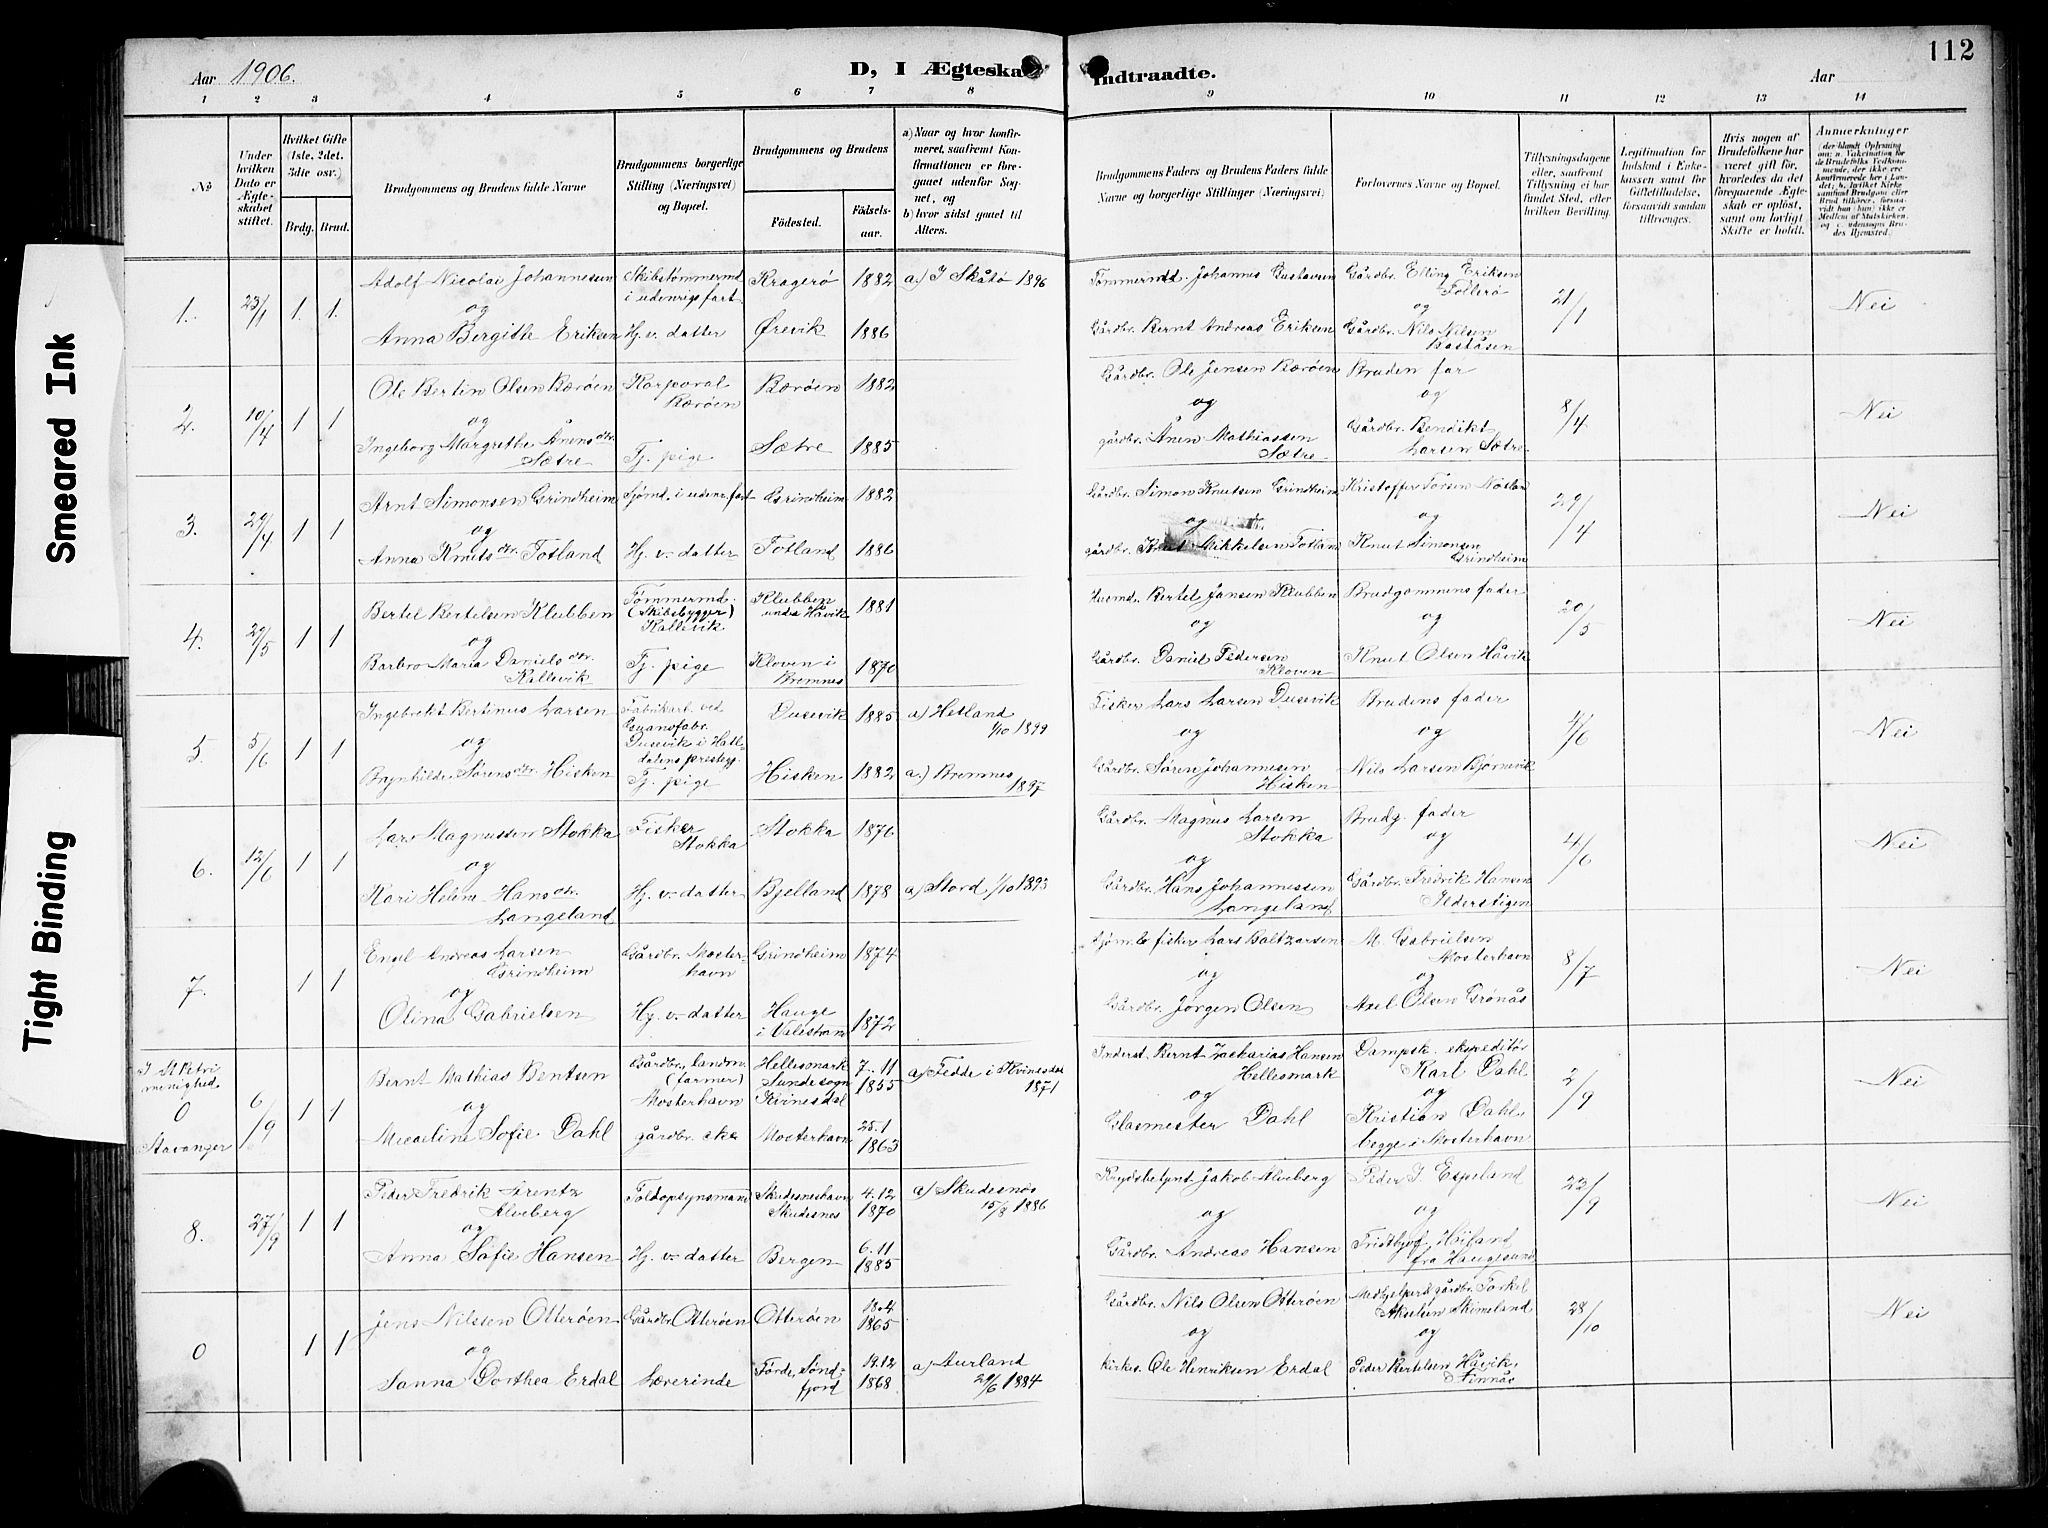 Smeared Ink
Tight Binding
Aar 1906.
D, I Ægteska
Indtraadte.
Aar
112
1 2 3 4 5 6 7 8 9 10 11 12 13 14
No
Under hvilken Dato er Ægteskabet stiftet.
Hvilket Gifte (1ste, 2det, 3die osv.)
Brdg. Brud.
Brudgommens og Brudens fulde Navne
Brudgommens borgerlige Stilling (Næringsvei) og Bopæl.
Brudgommens og Brudens
Fødested.
Fødselsaar.
a) Naar og hvor konfirmeret, saafremt Konfirmationen er foregaaet udenfor Sognet, og
b) hvor sidst gaaet til Alters.
Brudgommens Faders og Brudens Faders fulde Navne og borgerlige Stillinger (Næringsvei)
Forlovernes Navne og Bopæl.
Tillysningsdagene eller, saafremt Tillysning ei har fundet Sted, efter hvilken Bevilling.
Legitimation for Indskud i Enkekassen samt for Giftetilladelse, forsaavidt saadan tiltrænges.
Hvis nogen af Brudefolkene har været gift før, hvorledes da det foregaaende Ægteskab er opløst, samt om lovligt Skifte er holdt.
Anmerkninger (derblandt Oplysning om: a. Vakcination for de Brudefolks Vedkommende, der ikke ere konfirmerede her i Landet; b. hvilket Kirkesamfund Brudgom eller Brud tilhører, forsaavidt han (hun) ikke er Medlem af Statskirken, og c. udensogns Brudes Hjemsted.
1. 23/1 1 1. Adolf Nicolai Johannesen Skibstømmermd i udenrigs fart Kragerø 1882 a) I Skåtø 1896 Tømmermd. Johannes Gustavsen Gårdbr. Elling Eriksen Follerø 21/1 Nei
og og
Anna Bergitte Eriksen Hj. v. datter Ørevik 1886 Gårdbr. Bernt Andreas Eriksen Gårdbr. Nils Nilsen Baståsen
2. 10/4 1 1 Ole Bertin Olsen Børøen Korporal Børøen Børøen 1882 Gårdbr. Ole Jensen Børøen Bruden far 8/4 Nei
og og og
Ingeborg Margrethe Ånensdtr. Sætre Tj. pige Sætre 1885 gårdbr. Ånen Mathiassen Sætre Gårdbr. Bendikt Larsen Sætre
3. 29/4 1 1 Arnt Simonsen Grindheim Sjømd. i udenr. fart Grindheim 1882 Gårdbr. Simon Knutsen Grindheim Kristoffer Torsen 29/4 Nei
og og og
Anna Knutsdtr. Totland Hj. v. datter Totland 1886 gårdbr. Knut Mikkelsen Totland Knut Simonsen Grindheim
4. 29/5 1 1 Bertel Bertelsen Klubben Tømmermd. (Skibsbygger) Kallevik Klubben under Håvik 1881 Husmd. Bertel Jansen Klubben Brudgommens fader 20/5 Nei
og og og
Barbro Maria Danielsdtr. Kallevik Tj. pige Kloven i Bremnes 1870 Gårdbr. Daniel Pedersen Kloven Knut Olsen Håvik
5. 5/6 1 1 Ingebrekt Bertinus Larsen Fabrikarb. ved Guanofabr. Dusevik i Hatldalens prestegj. Dusevik 1885 a) Hetland 1/10 1899 Fisker Lars Larsen Dusevik Brudens fader 4/6 Nei
og og og
Brynhilde Sørensdtr. Hisken Tj. pige Hisken 1882 a.) Bremnes 1897 Gårdbr. Søren Johannesen Hisken Nils Larsen Bjørnevik
6. 12/6 1 1 Lars Magnussen Stokka Fisker Stokka Stokka 1876 Gårdbr. Magnus Larsen Stokka Brudg. fader 4/6 Nei
og og og
Kari Helene Hansdtr. Langeland Hj. v. datter Bjelland 1878 a) Stord 1/10 1893 Gårdbr. Hans Johannessen Langeland Gårdbr. Fredrik Hansen
7. 1 1 Engel Andreas Larsen Grindheim Gårdbr. Mosterhavn Grindheim 1874 Sjøm. & fisker Lars Baltzersen M. Gabrielsen Mosterhavn 8/7 Nei
og og og
Olina Gabrielsen Hj. v. datter Hauge i Valestrand 1872 Gårdbr. Jørgen Olsen Axel Olsen Grønås
I St Petri menighed 0 Stavanger 6/9 1 1 Bernt Mathias Bentsen Gårdbr., landm. (farmer) Mosterhavn Hellesmark Sundesogn Kvinesdal 7.11 1855 a) Fedde i Kvinesdal 1871 Inderst. Bernt Zackarias Hansen Hellesmark Dampsk. ekspeditør Karl Dahl 2/9 Nei
og og og
Micaeline Sofie Dahl gårdbr. Mosterhavn 25.1 1863 Glasmester Dahl Kristian Dahl, begge i Mosterhavn
8. 27/9 1 1 Peder Fredrik Arentz Alveberg Toldopsynsmand Skudesneshavn Skudesnes 4.12 1870 a) Skudesnes 15/8 1886 Jakob Alveberg Peder I. Espeland 23/9 Nei
og og og
Anna Sofie Hansen Hj. v. datter Bergen 6.11 1885 Gårdbr. Andreas Hansen Fridthjof Høiland fra Haugesund
0 1 1 Jens Nilssen Otterøen Gårdbr. Otterøen Otterøen 18.4 1865 Gårdbr. Nils Olsen Otterøen Medhjelper & gårdbr. Torkel Akselsen Skimeland 28/10 Nei
og og og
Sanna Dorthea Erdal Lærerinde Førde, Søndfjord 19.12 1868 a) Aurland 29/6 1884 Kirkes. Ole Henriksen Erdal Peder Bertelsen Håvik, Finnås